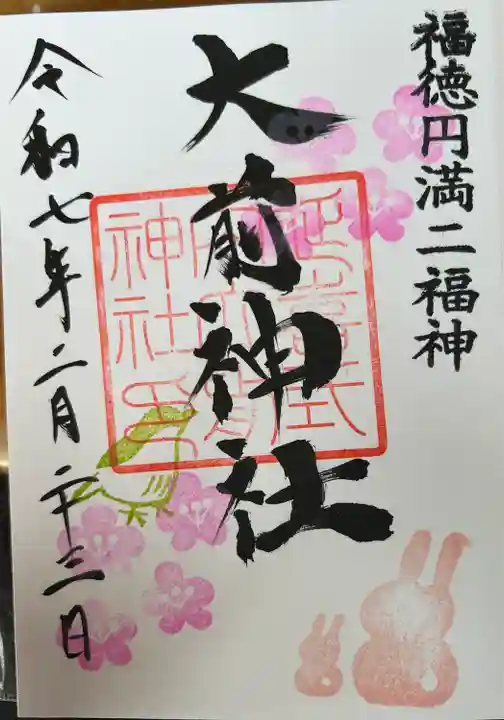 福徳円満二福神
大前神社
令和七年二月二十三日
神社印